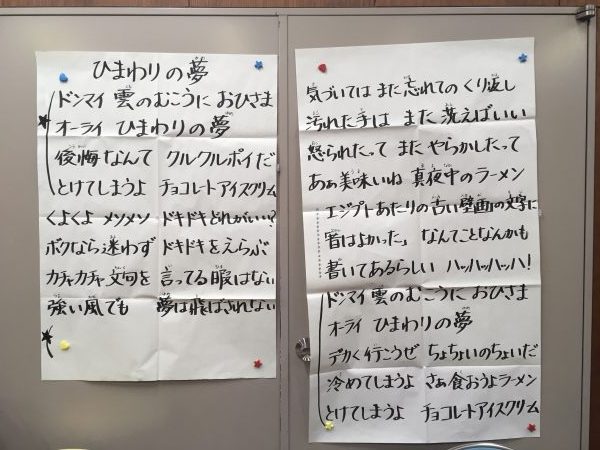 ひまわりの夢
ドンマイ 雲のむこうに おひさま
オーライ ひまわりの夢
後悔なんて クルクルポイだ
とけてしまうよ チョコレートアイスクリム
くよくよ メソメソ ドキドキどれがいい?
ボクなら迷わず ドキドキをえらぶ
カチャカチャ文句を 言ってる暇はない
強い風でも 夢は飛ばされない
気づいては また 忘れての くり返し
汚れた手は また 洗えばいい
怒られたって また やらかしたって
あぁ美味いね 真夜中のラーメン
エジプトあたりの古い壁画の文字に
「昔はよかった」 なんてことなんかも
書いてあるらしい ハッハッハッハ!
ドンマイ 雲のむこうに おひさま
オーライ ひまわりの夢
デカく行こうぜ ちょちょいのちょいだ
冷めてしまうよ さぁ食おうよラーメン
とけてしまうよ チョコレートアイスクリム